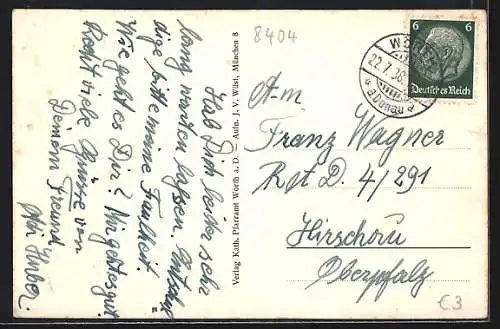 8404
Hab Dich leider sehr
lang warten lassen. Entschul=
dige bitte meine Faulheit.
Wie geht es Dir? Mir geht es gut.
Recht viele Grüsse von
Deinem Freund
Huber.
Verlag Kath. Pfarramt Wörth a. D. Aufn. J. V. Wüst, München 8
6 6
Deutsches Reich
22.7.36
* a Donau *
An
Franz Wagner
R t D. 4/291
Hirschau
Oberpfalz
€3